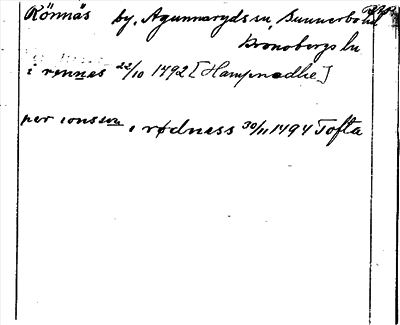 Rönnäs by, Agunnaryds sn, Sunnerbo hd
Kronobergs ln
i rønnes 22/10 1492 [Hampnedhe]
per ionsson i rødness 30/11 1494 Tofta